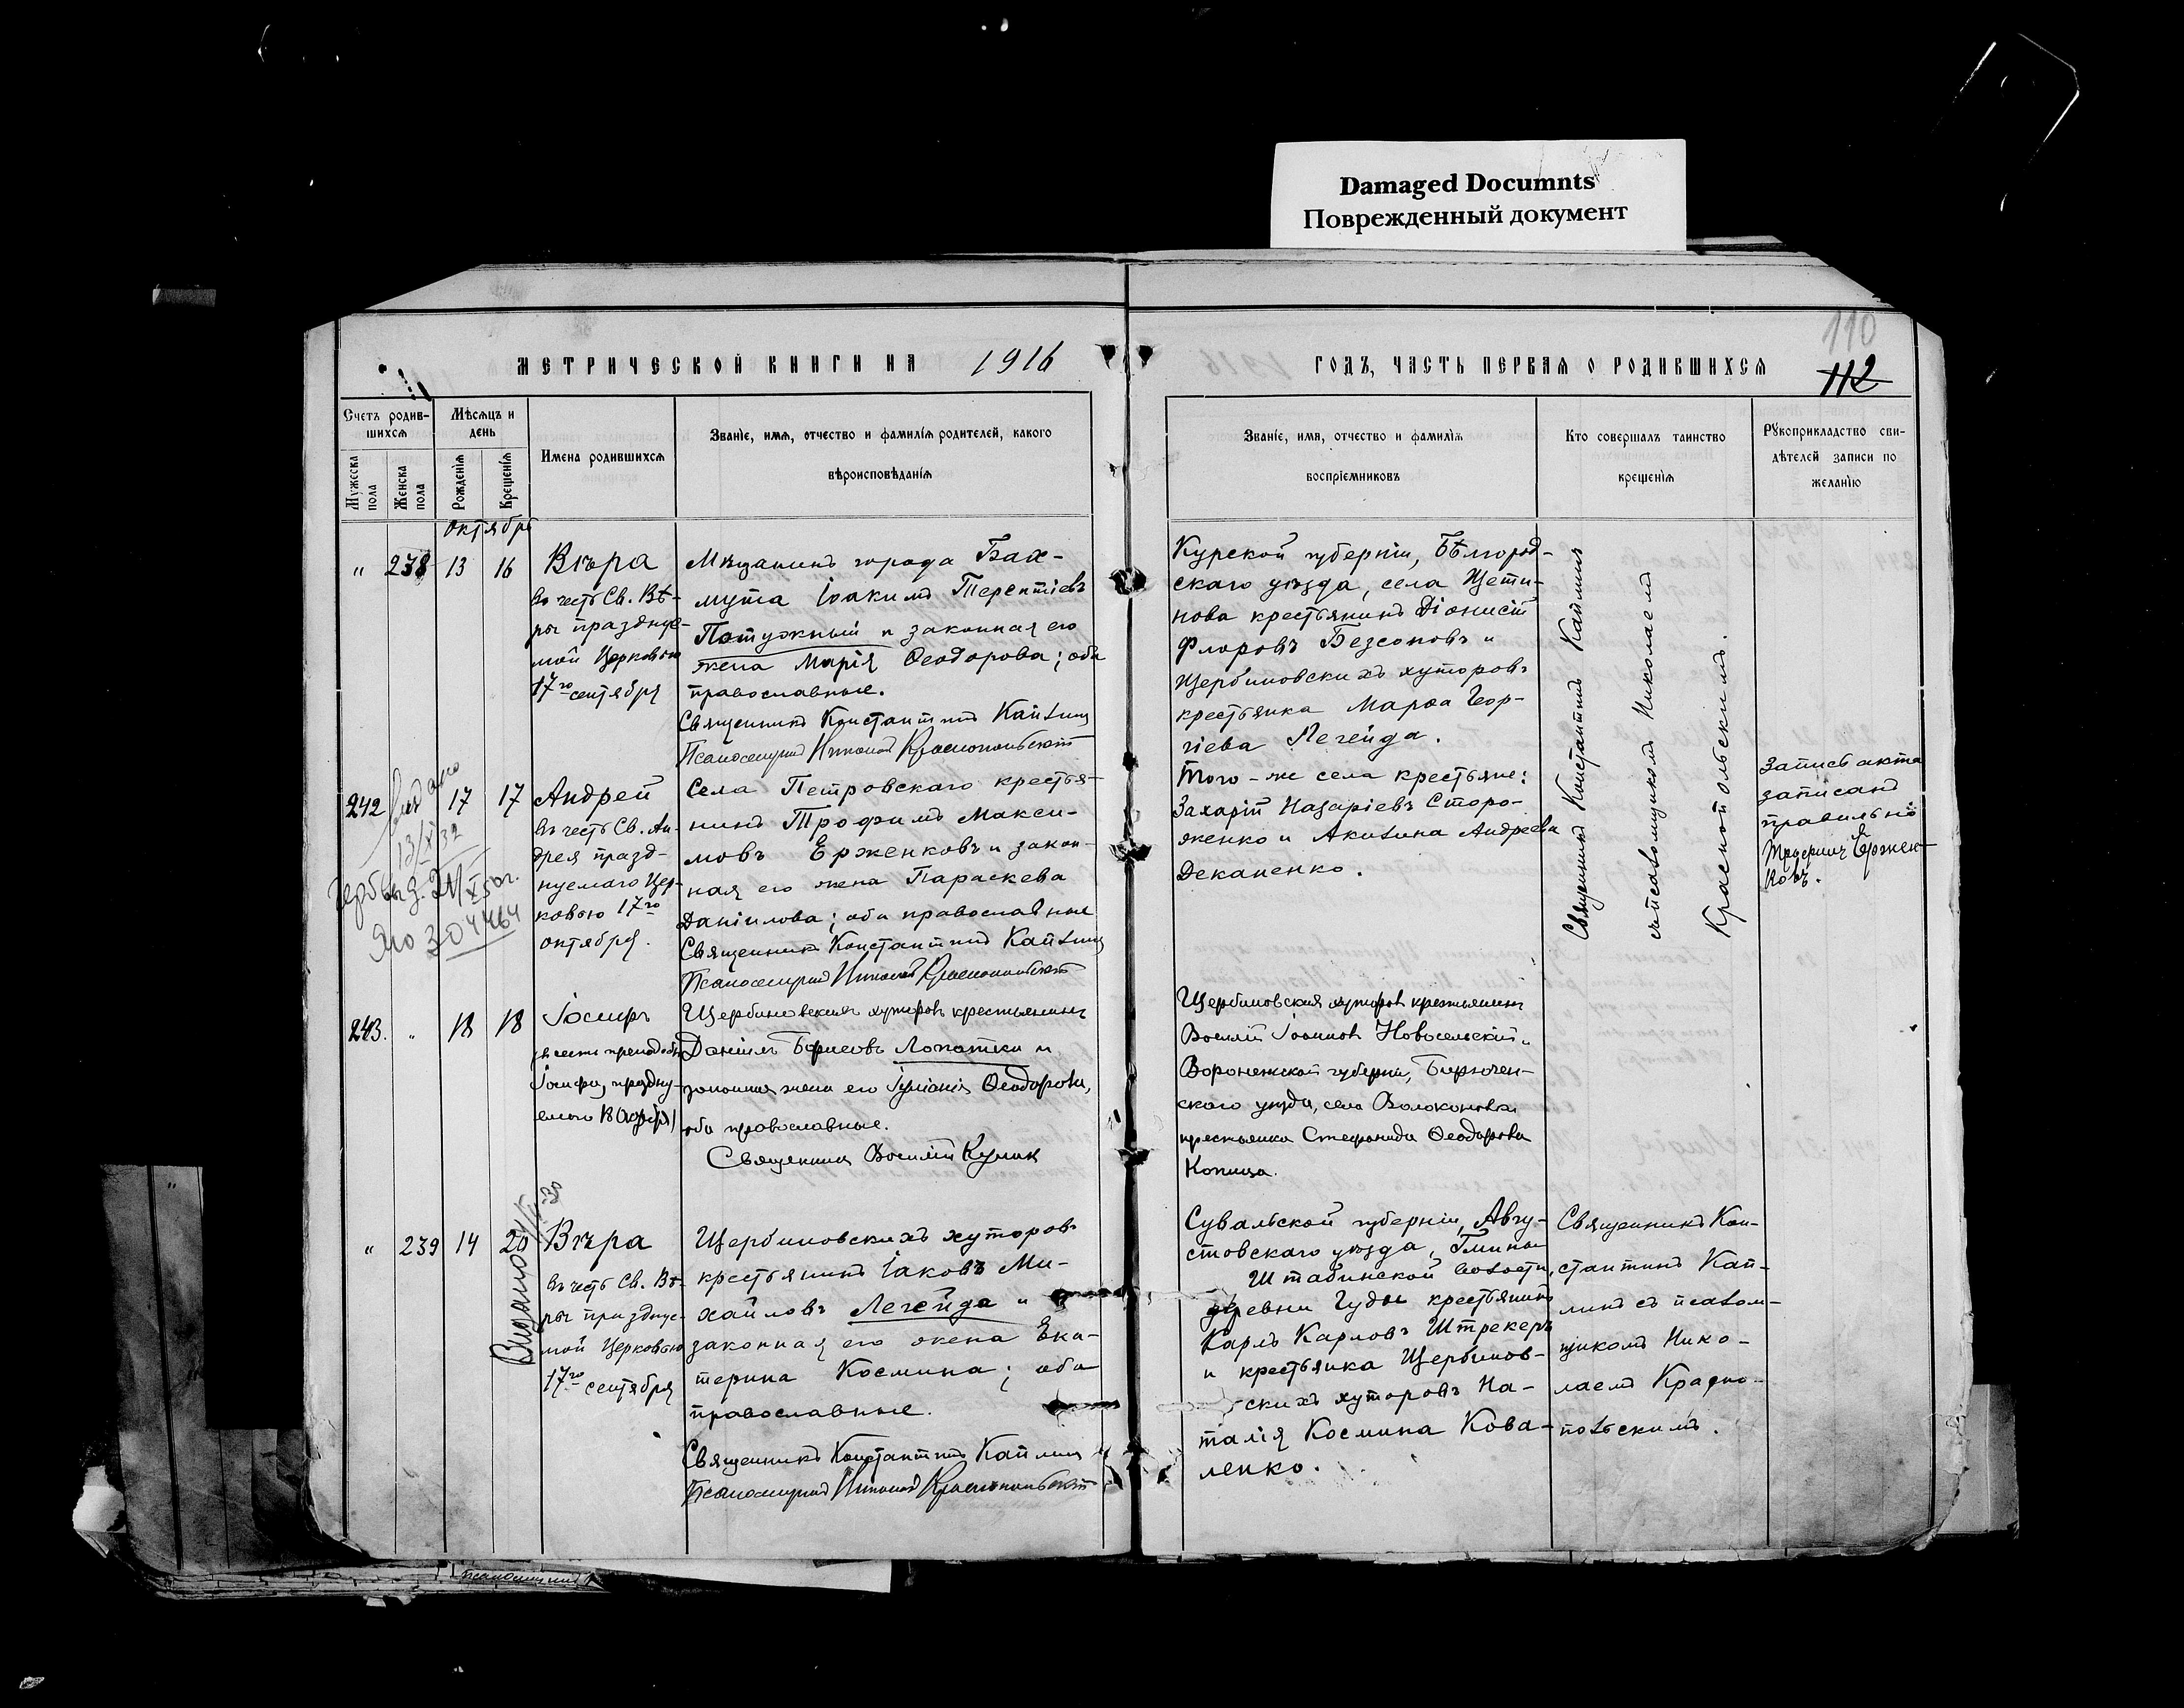 Damaged Documnts
Поврежденный документ
МЕТРИЧЕСКОЙ КНИГИ НА 1916
ГОДЪ, ЧАСТЬ ПЕРВАЯ О РОДИВШИХСЯ
110
112
Счетъ родив-
шихся
Мужеска
пола
Женска
пола
Мѣсяцъ и
день
Рожденія
Крещенія
Имена родившихся
Званіе, имя, отчество и фамилія родителей, какого
вѣроисповѣданія
Званіе, имя, отчество и фамилія
воспріемниковъ
Кто совершалъ таинство
крещенія
Рукоприкладство сви-
дѣтелей записи по
желанію
октября
" 238 13 16
Вѣра
въ честь Св. Вѣ-
ры празднуе-
мой Церковью
17го сентября
Мѣщанинъ города Бах-
мута Іоакимъ Терентіевъ
Потужный и законная его
жена Марія Ѳеодорова; оба
православные.
Священникъ Константинъ Каплинъ
Псаломщикъ Николай Краснопольскій
Курской губерніи, Бѣлгород-
скаго уѣзда, села Щети-
нова крестьянинъ Діонисій
Флоровъ Безсоновъ и
Щербиновскихъ хуторовъ
крестьянка Марѳа Геор-
гіева Легейда.
Священникъ Константинъ Каплинъ
съ псаломщикомъ Николаемъ
Краснопольскимъ.
242 17 17
13/XI 32
304464
Андрей
въ честь Св. Ан-
дрея празд-
нуемаго Цер-
ковью 17го
октября.
Села Петровскаго крестья-
нинъ Трофимъ Макси-
мовъ Ерженковъ и закон-
ная его жена Параскева
Даніилова; оба православные
Священникъ Константинъ Каплинъ
Псаломщикъ Николай Краснопольскій
Того-же села крестьяне:
Захарій Назаріевъ Сторо-
женко и Акилина Андреева
Деканенко.
Запись акта
записана
правильно
Трофимъ Ержен-
ковъ.
243. " 18 18
Іосифъ
въ честь преподобн.
Іосифа, праздну-
емаго 18 октября
Щербиновскихъ хуторовъ крестьянинъ
Даніилъ Борисовъ Лопатка и
законная жена его Іуліанія Ѳеодорова,
оба православные.
Священникъ Василій Куликъ
Щербиновскихъ хуторовъ крестьянинъ
Василій Іоанновъ Новосельскій и
Воронежской губерніи, Бирючен-
скаго уѣзда, села Волоконовки
крестьянка Стефанида Ѳеодорова
Копица.
" 239 14 20
Выдано
Вѣра
въ честь Св. Вѣ-
ры празднуе-
мой Церковью
17го сентября
Щербиновскихъ хуторовъ
крестьянинъ Іаковъ Ми-
хайловъ Легейда и
законная его жена Ека-
терина Космина; оба
православные.
Священникъ Константинъ Каплинъ
Псаломщикъ Николай Краснопольскій
Сувальской губерніи, Авгу-
стовскаго уѣзда, Гмины
Штабинской волости,
деревни Гуды крестьянинъ
Карлъ Карловъ Штрекеръ
и крестьянка Щербинов-
скихъ хуторовъ На-
талія Космина Кова-
ленко.
Священникъ Кон-
стантинъ Кап-
линъ съ псалом-
щикомъ Нико-
лаемъ Красно-
польскимъ.